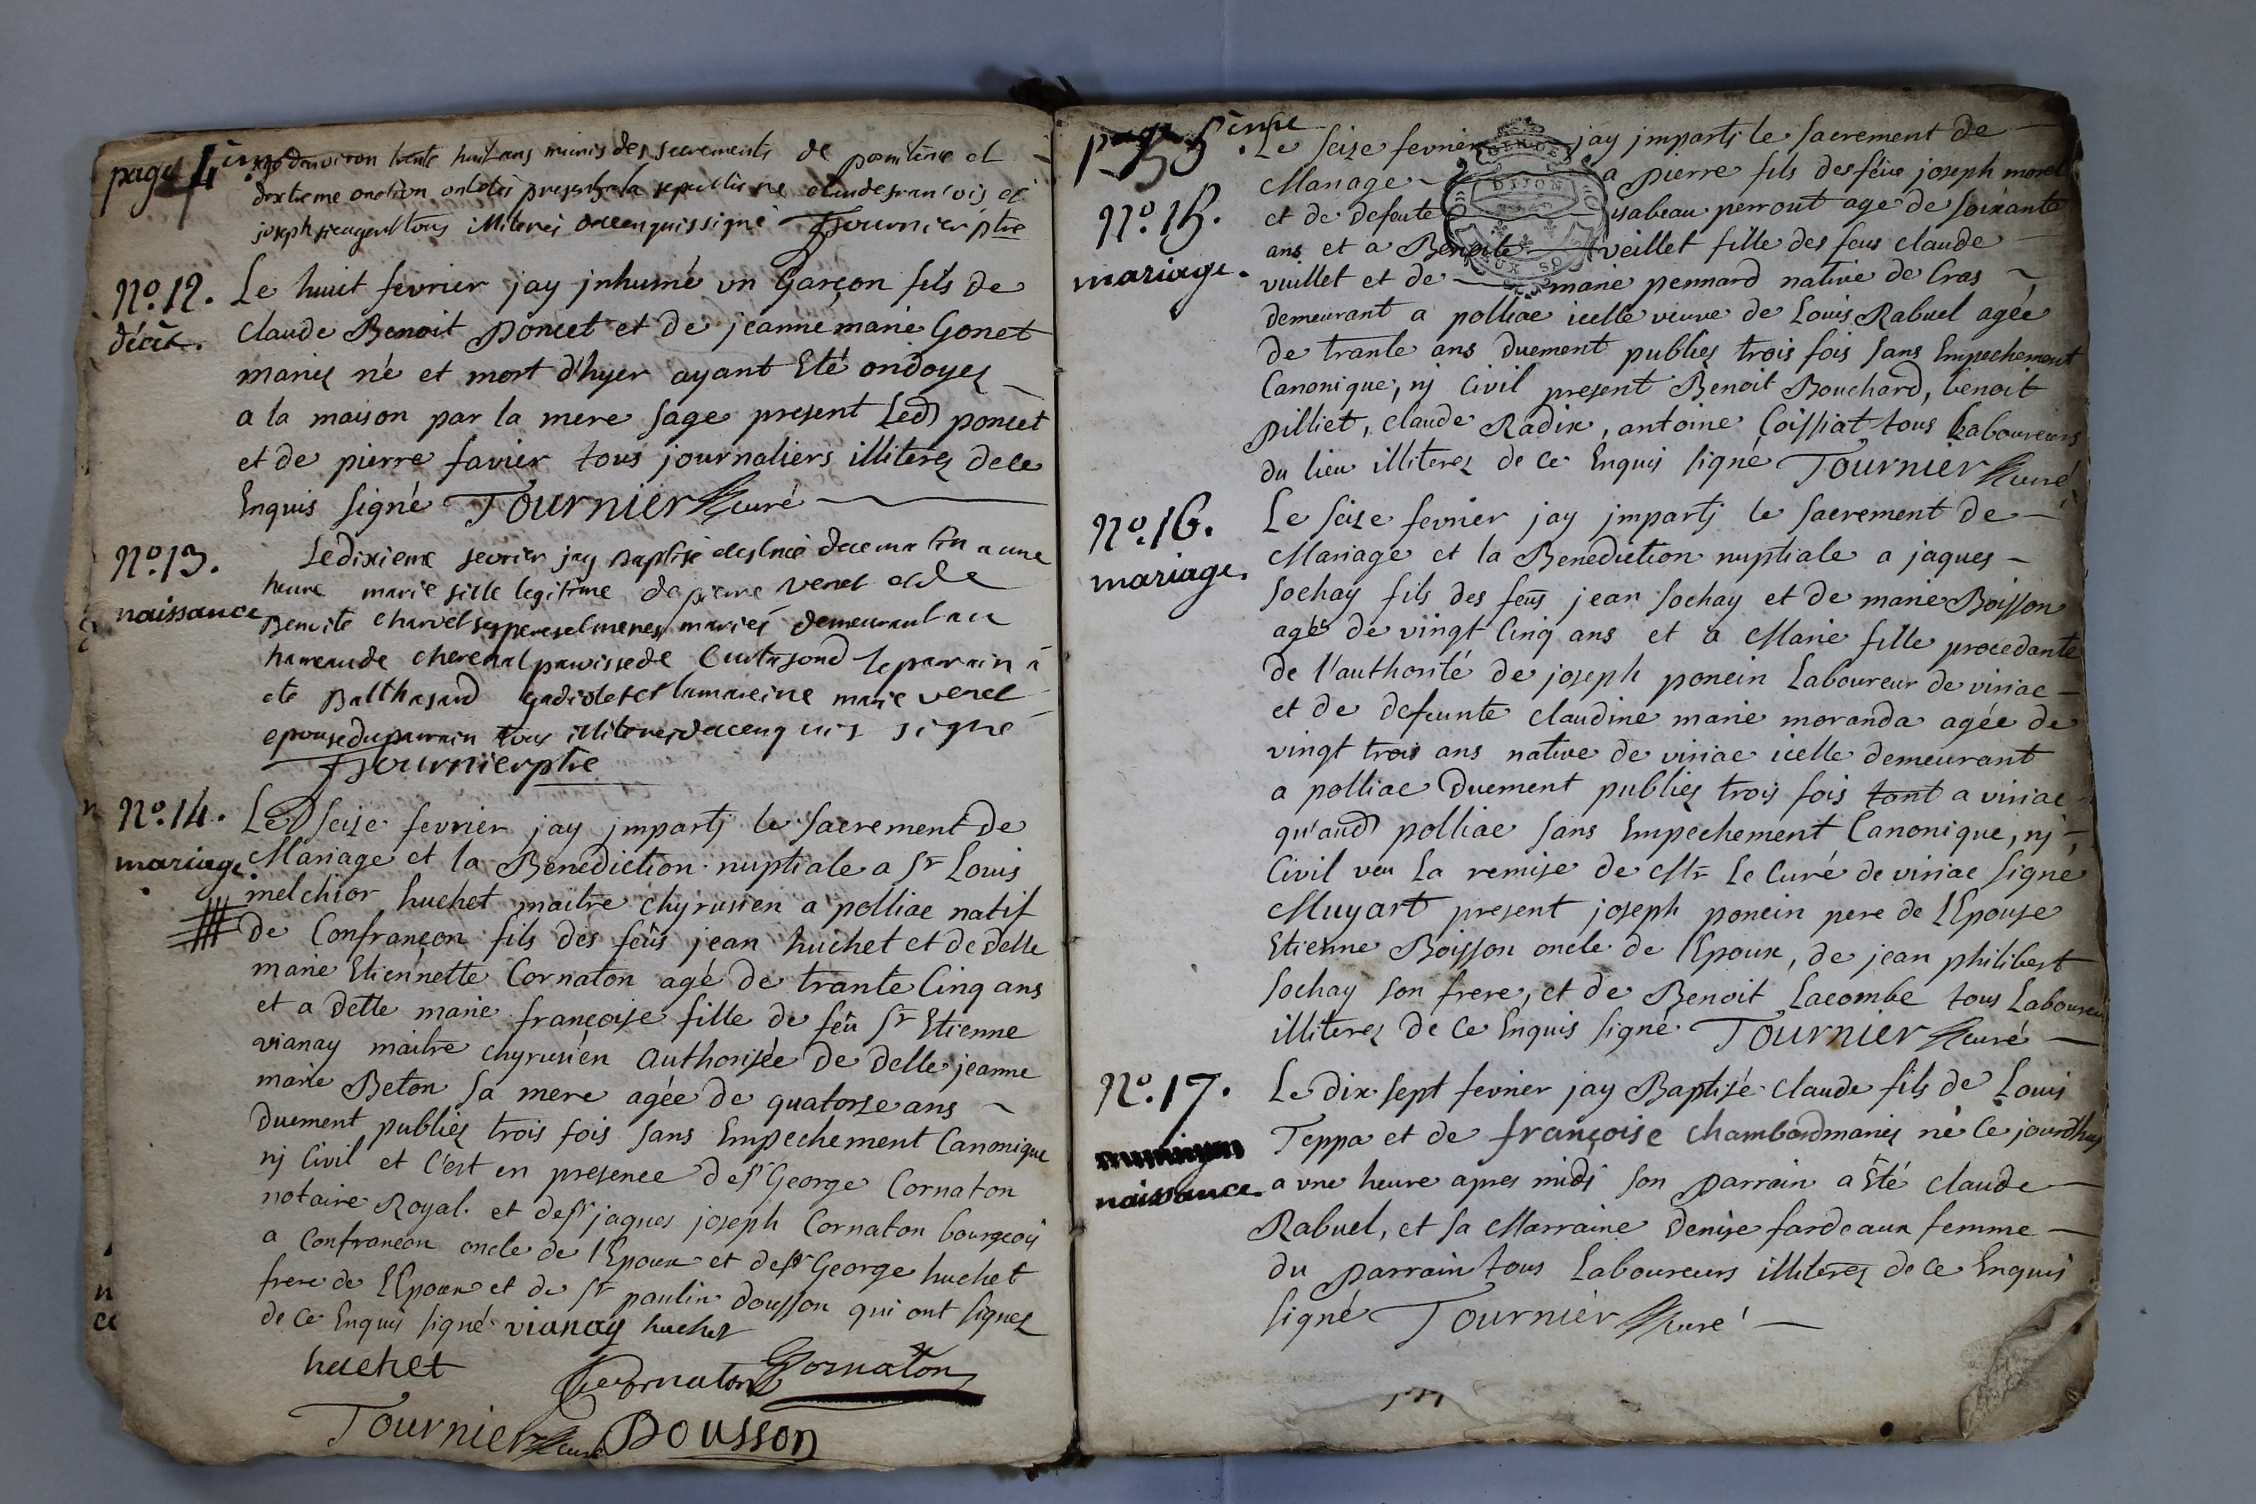 page 4ème
agé d'environ trente huit ans munis des secrements de penitence et
dextreme onction ont étés presents a la sepulture claude francois et
joseph tous illiteres de ce enquis signé Tournier ptre
No. 12.
décès.
Le huit fevrier jay jnhumé vn Garçon fils de
Claude Benoit Poncet et de jeanne marie Gonet
mariez né et mort d'hyer ayant Eté ondoyez
a la maison par la mere sage present Led poncet
et de pierre favier tous journaliers illiterez de ce
Enquis signé Tournier curé
No. 13.
naissance
Le dixieme fevrier jay Baptisé et est née du matin a une
heure marie fille legitime de pierre venet et de
Benoite charvet ses pere et meres mariés demeurant au
hameau de cherenal parroisse de Curtafond le parrain a
ete Balthasard gadiolet et la mareine marie venet
epouse du parrain tous illiteres de ce enquis signé
Tournier ptre
No. 14.
mariage.
Le seize fevrier jay jmparti le sacrement de
Mariage et la Benediction nuptiale a Sr Louis
melchior huchet maitre chyrurien a polliac natif
de Confrançon fils des feûs jean huchet et de delle
marie Etiennette Cornaton agé de trante Cinq ans
et a delle marie françoise fille de feû Sr Etienne
vianay maitre chyrurien authorisée de delle jeanne
marie Beton sa mere agée de quatorze ans
duement publiez trois fois sans Empechement Canonique
nj Civil et c'est en presence de sr George Cornaton
notaire Royal. et de sr jaques joseph Cornaton bourgeois
a Confrancon oncle de l'Epoux et de sr George huchet
frere de l'Epoux et de sr paulin dousson qui ont signez
de ce Enquis signé vianay huchet
huchet Cornaton Cornaton
Tournier curé Dousson
page 5ème
No. 15.
mariage.
Le seize fevrier jay jmparti le sacrement de
Mariage a pierre fils des feûs joseph morel
et de defeute isabeau perrout age de soixante
ans et a Benoite veillet fille des feus claude
vuillet et de marie pennard native de Cras
demeurant a polliac icelle veuve de Louis Rabuel agée
de trante ans duement publiez trois fois sans Empechement
Canonique, nj Civil present Benoit Bouchard, benoit
pilliet, claude Radix, antoine Coissiat tous Laboureurs
du lieu illiterez de ce Enquis signé Tournier curé
No. 16.
mariage.
Le seize fevrier jay jmparti le sacrement de
Mariage et la Benediction nuptiale a jaques
sochay fils des feûs jean sochay et de marie Boisson
agés de vingt Cinq ans et a Marie fille procedante
de l'authorité de joseph poncin Laboureur de viriac
et de defeunte claudine marie moranda agée de
vingt trois ans native de viriac icelle demeurant
a polliac Duement publiez trois fois tont a viriac
qu'aud polliac sans Empechement Canonique, nj
Civil veu la remise de Mr Le Curé de viriac signé
Muyart present joseph poncin pere de l'Epouse
Etienne Boisson oncle de l'Epoux, de jean philibert
sochay son frere, et de Benoit Lacombe tous Laboureurs
illiterez de Ce Enquis signé Tournier curé
No. 17.
naissance
Le dix sept fevrier jay Baptisé claude fils de Louis
Teppa et de françoise chambard mariez né Ce jourdhuy
a vne heure apres midi son parrain a Eté claude
Rabuel, et sa Marraine denise fardeaux femme
du parrain tous Laboureurs illiterez de ce Enquis
signé Tournier curé
DIJON